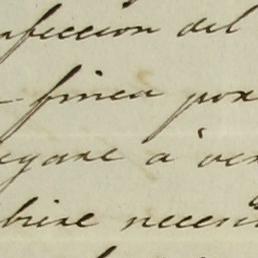 nfeccion del
finca por
egare a ver
biere necesi